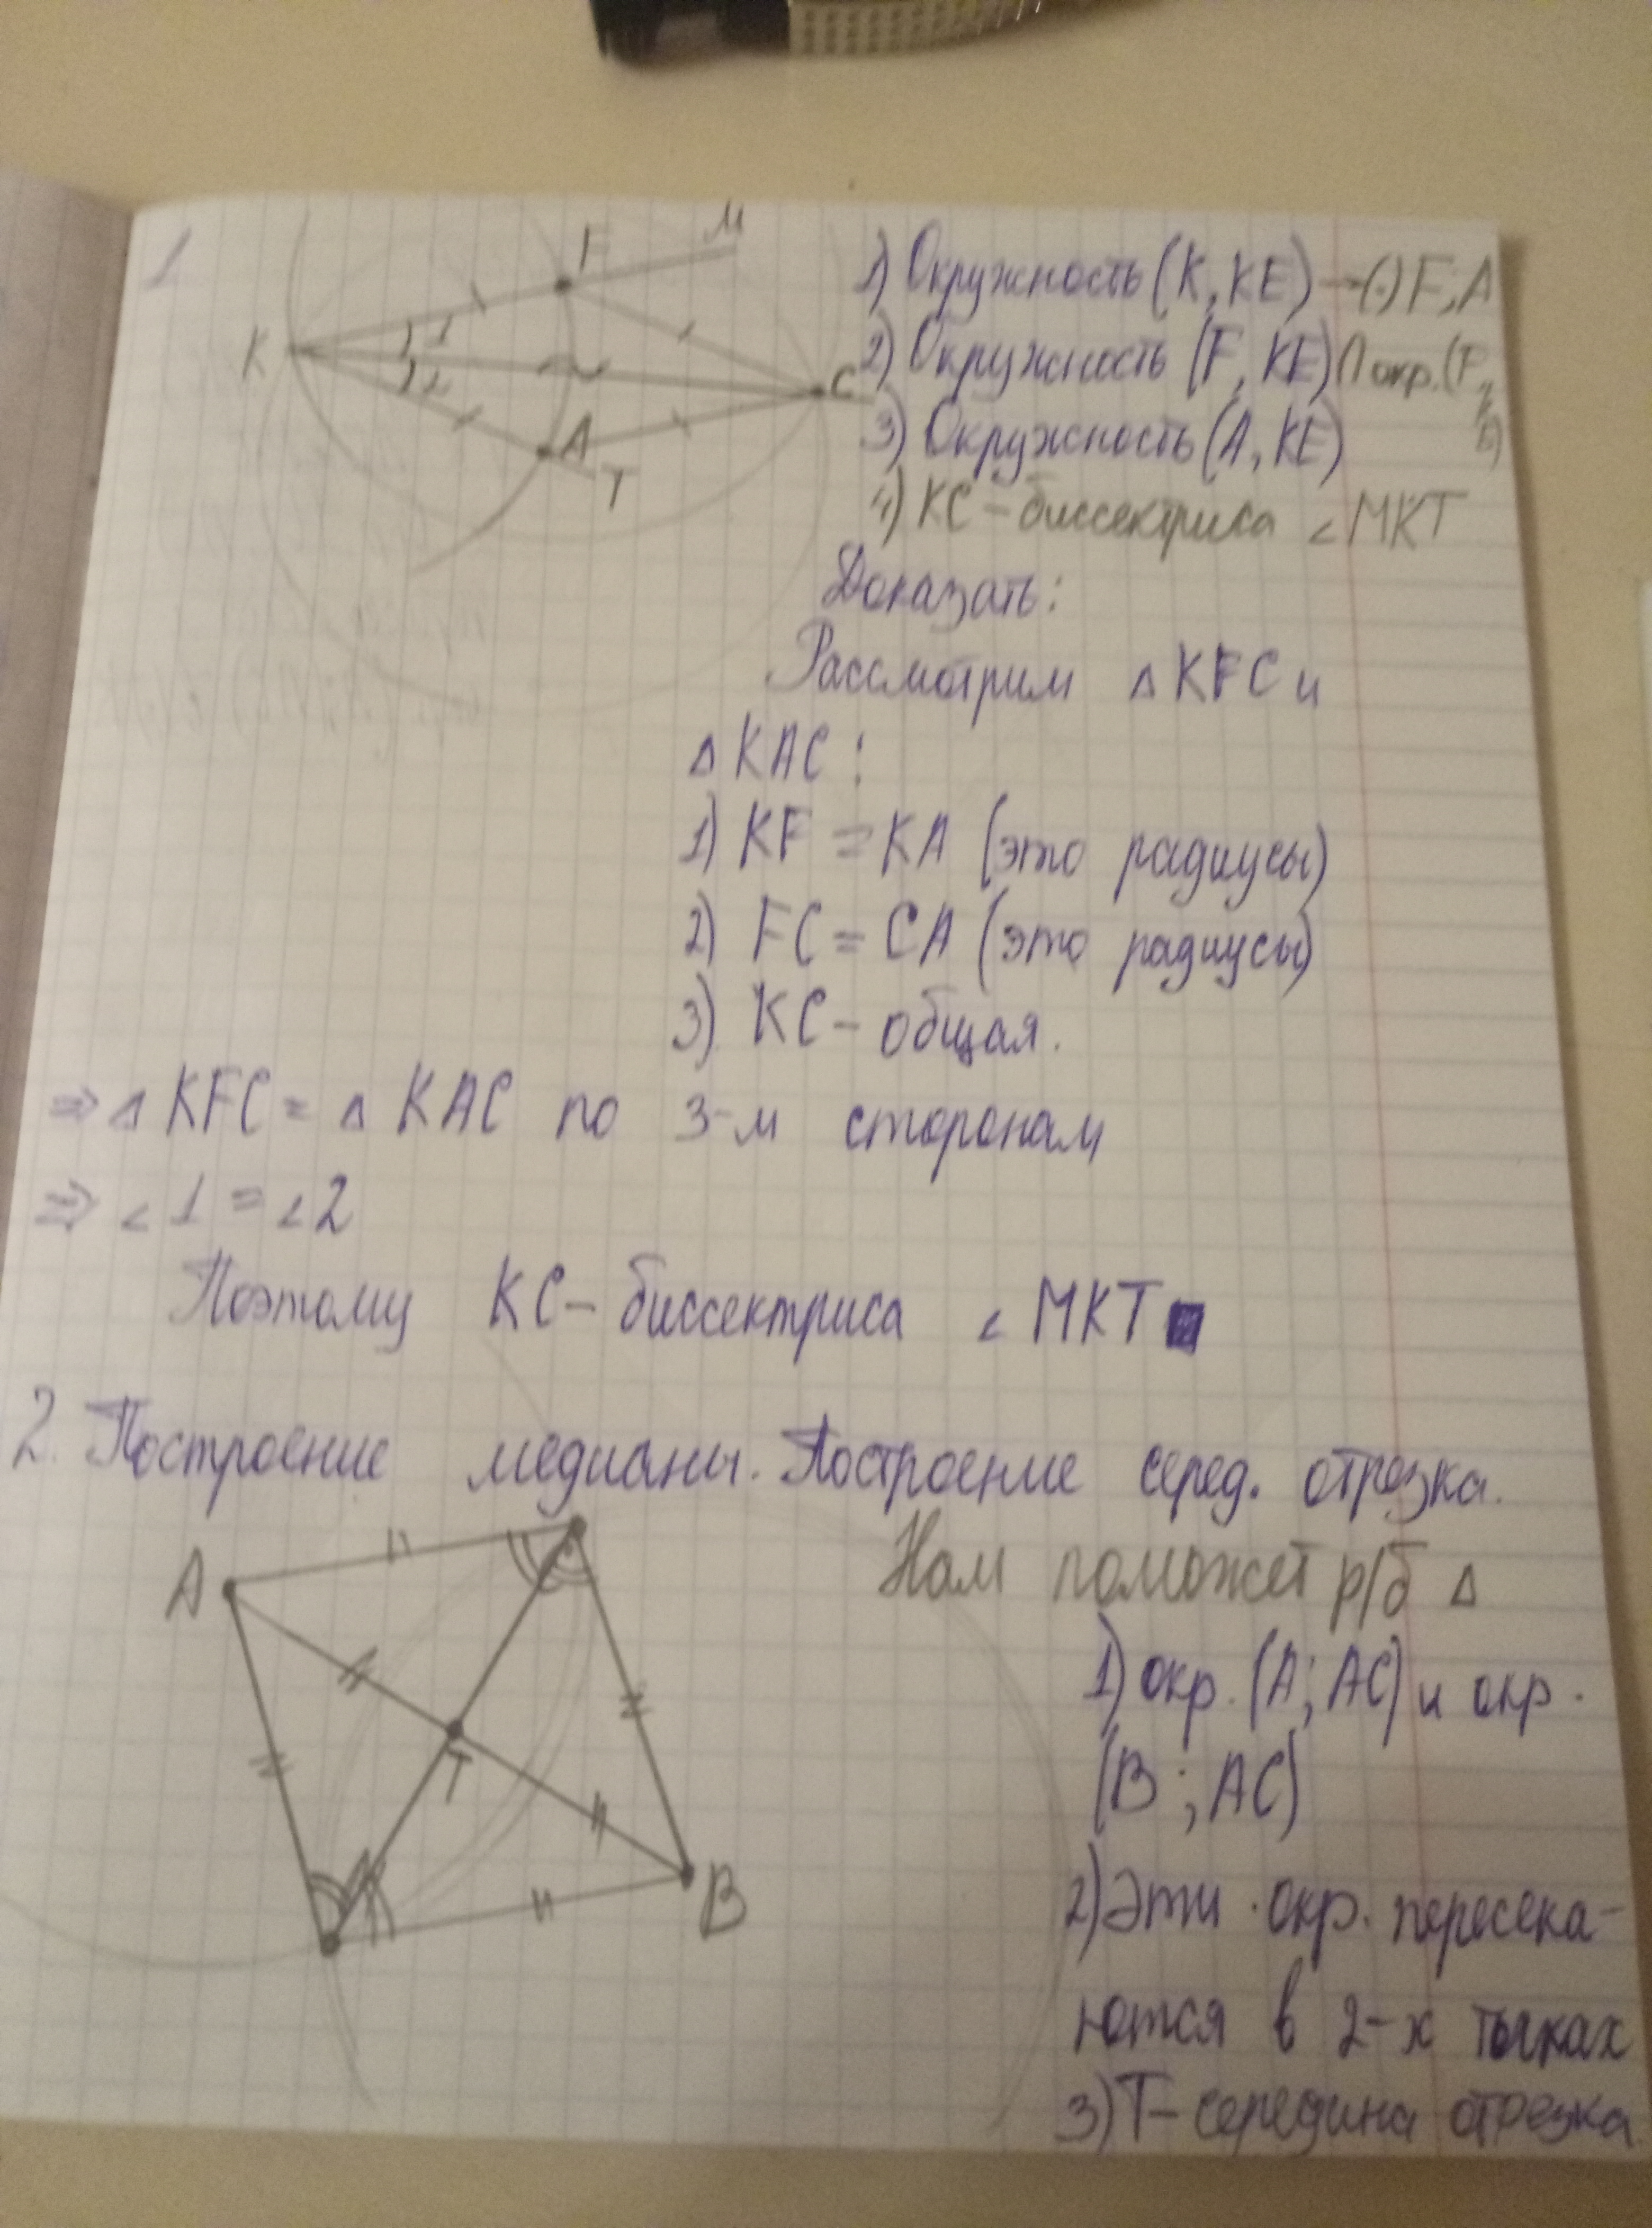 1
F
M
K
1
2
C
A
T
1) Окружность (К, КЕ) → (·) F; А
2) Окружность (F, КЕ) ∩ окр. (F,
3) Окружность (А, КЕ)
4) КС – биссектриса ∠ МКТ
Доказать:
Рассмотрим △ KFC и
△ КАС :
1) KF = КА (это радиусы)
2) FC = СА (это радиусы)
3) КС – общая.
⇒ △ KFC = △ КАС по 3-м сторонам
⇒ ∠ 1 = ∠ 2
Поэтому КС – биссектриса ∠ МКТ
2. Построение медианы. Построение серед. отрезка.
А
Т
В
Нам поможет р/б △
1) окр. (А; АС) и окр.
(В ; АС)
2) Эти окр. пересека-
ются в 2-х точках
3) Т – середина отрезка